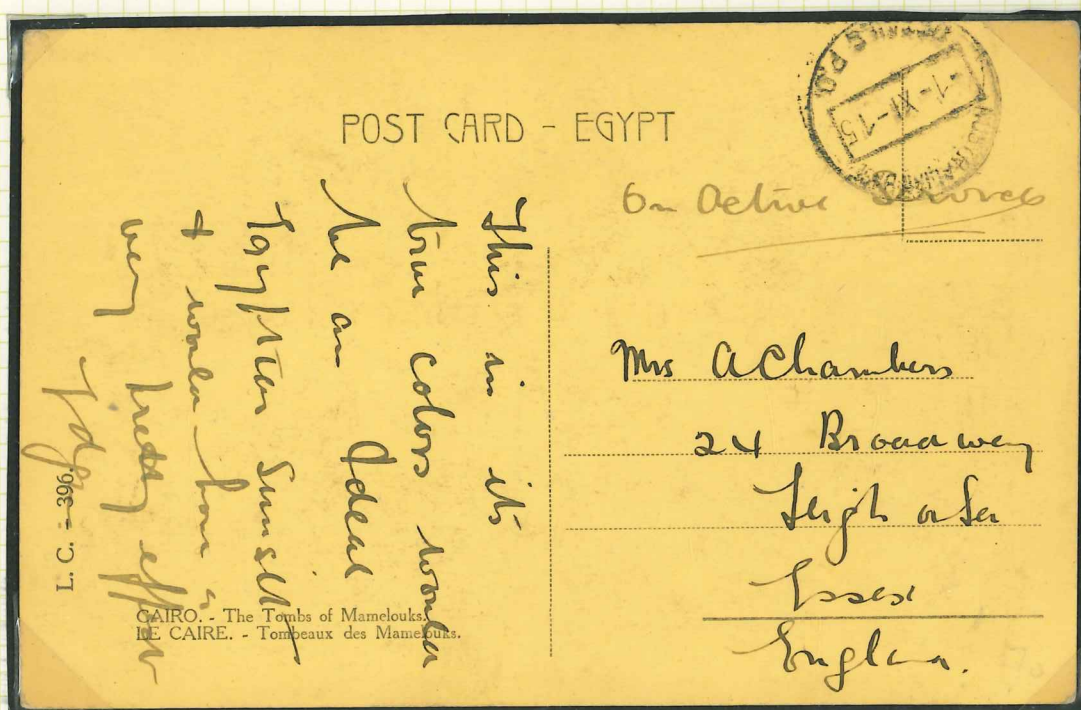 POST CARD - EGYPT
AUSTRALIAN
-1-XI-15
On Active Service
This in its
true colors would
be an Ideal
Egyptian Sunset
& would have a
very pretty effect
Mrs A Chambers
24 Broadway
Leigh o Sea
Essex
England.
L. C. - 396.
CAIRO. - The Tombs of Mamelouks.
LE CAIRE. - Tombeaux des Mamelouks.